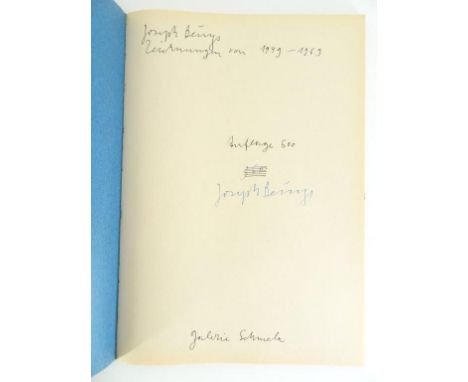 Joseph Beuys
Zeichnungen von 1949-1969
Auflage 500
Joseph Beuys
Galerie Schmela